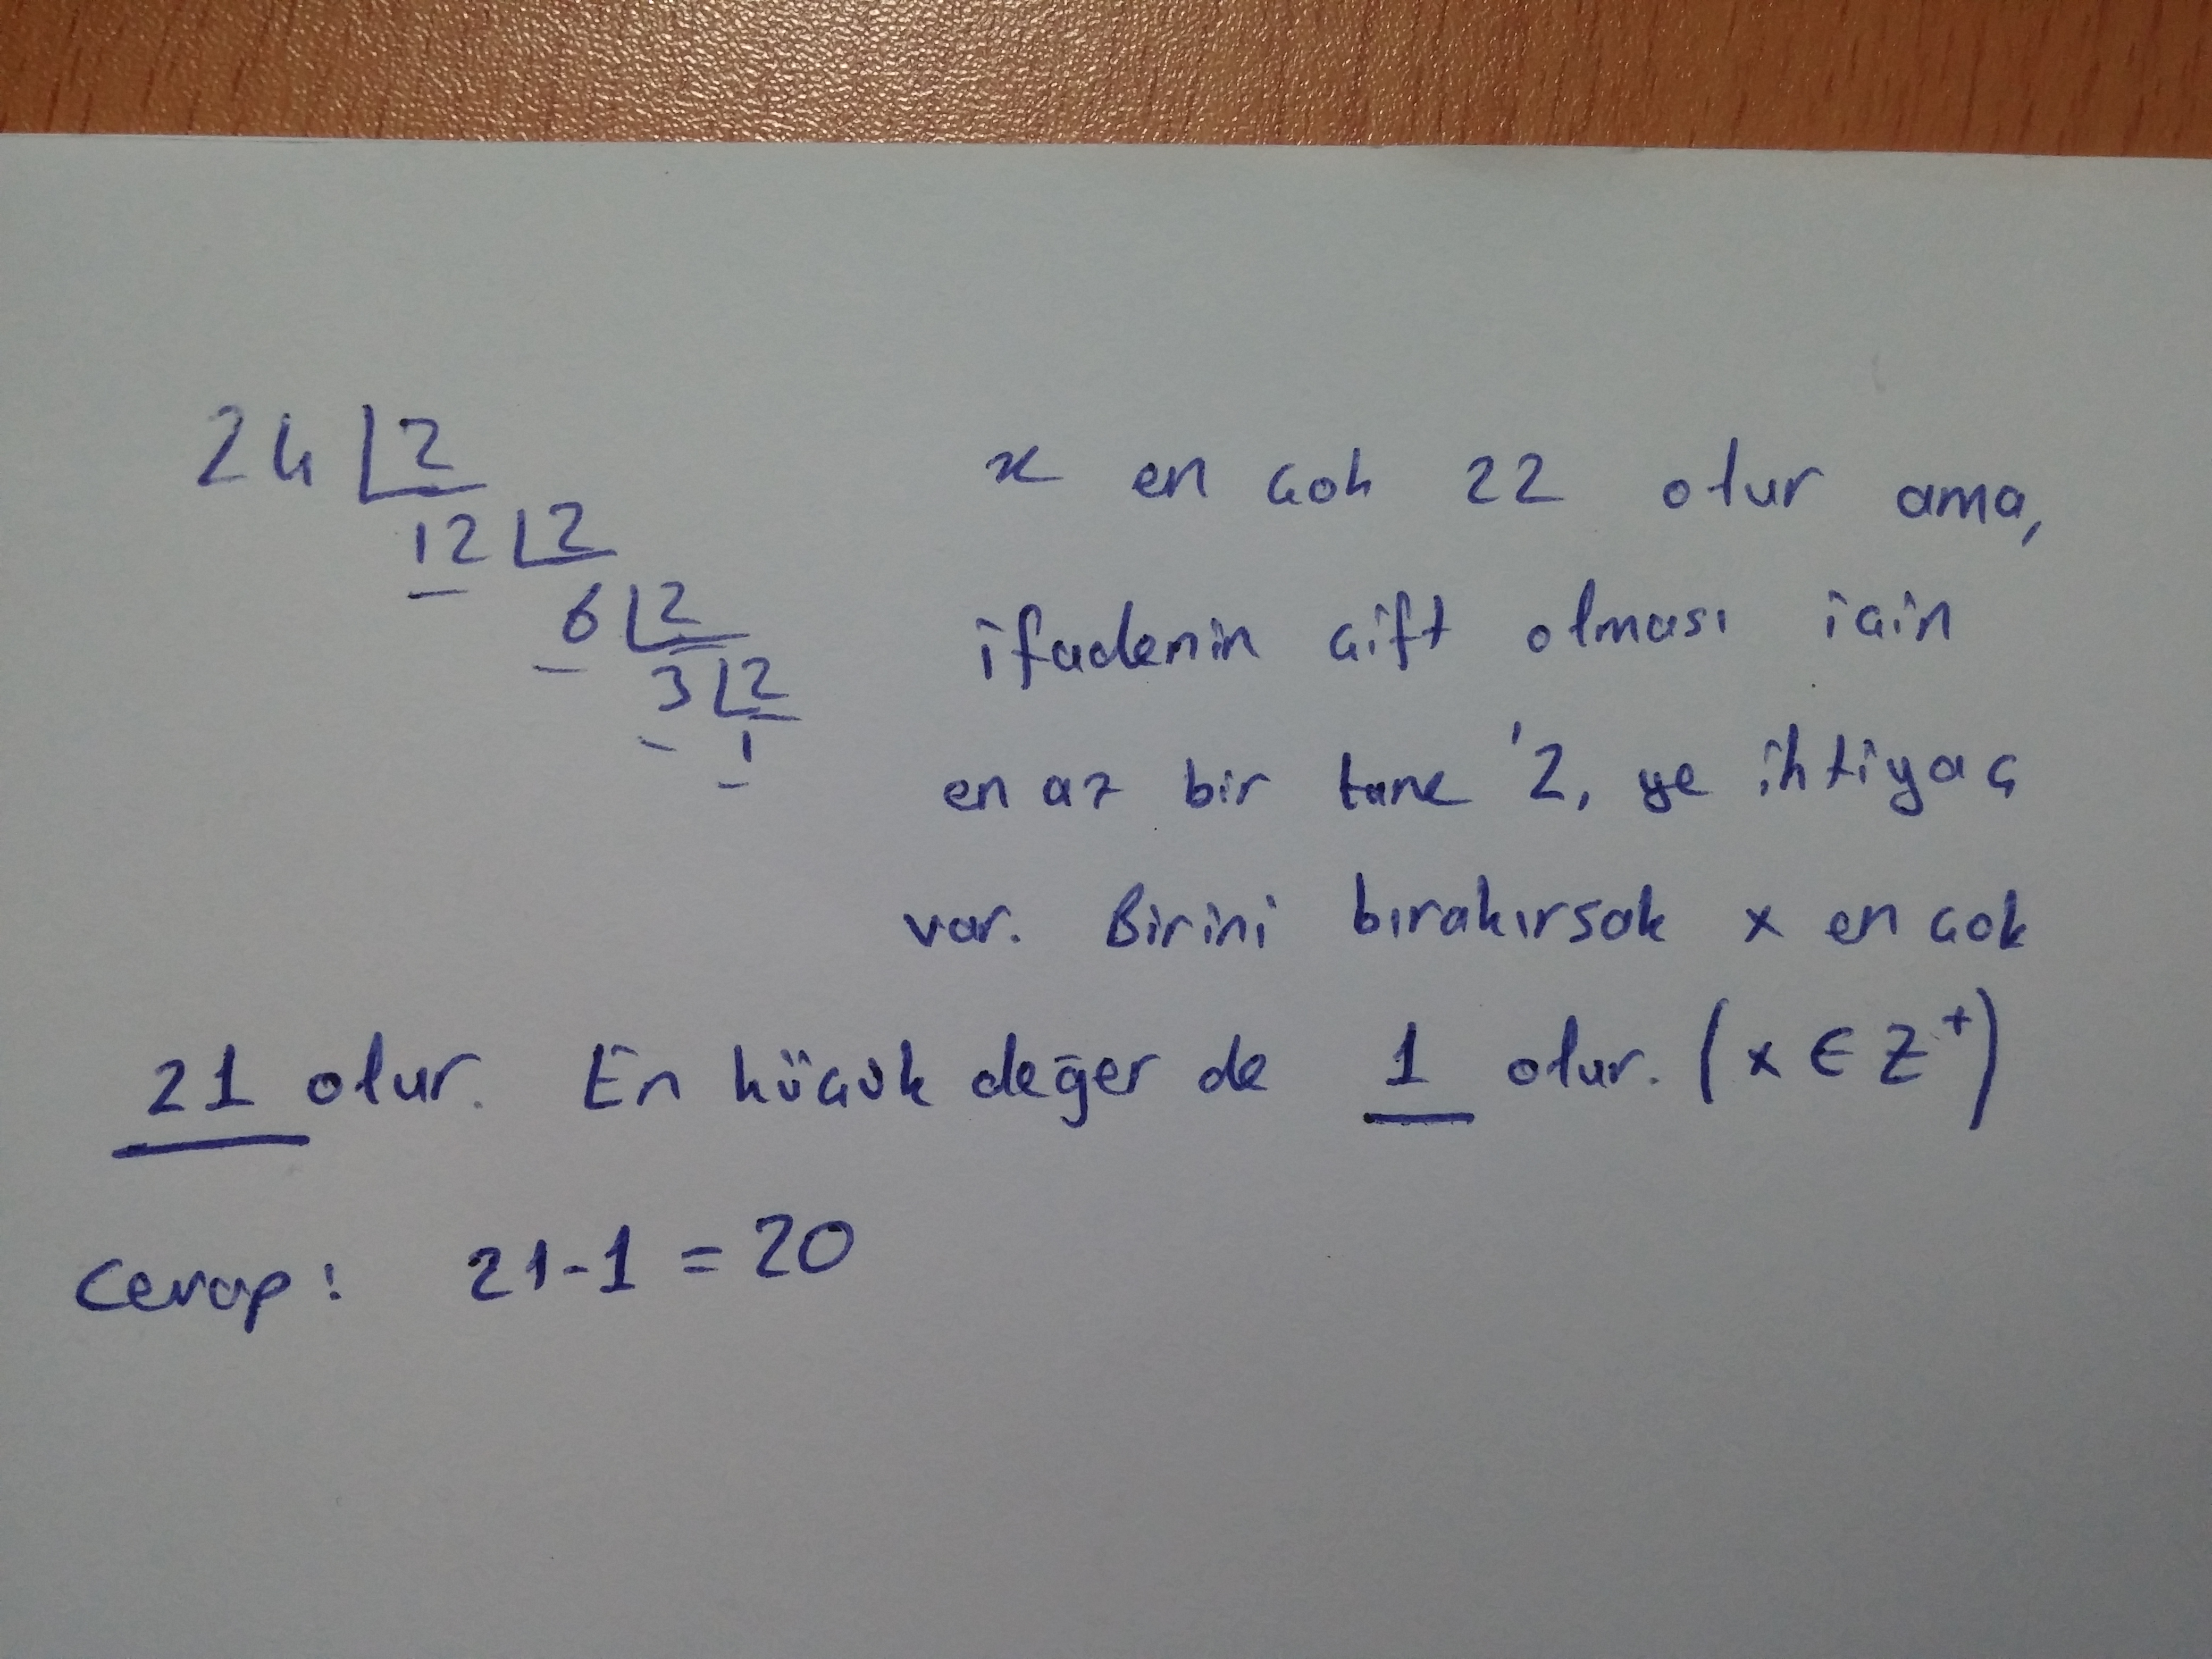 24 2
12 2
6 2
3 2
1
x en çok 22 olur ama,
ifadenin çift olması için
en az bir tane '2, ye ihtiyaç
var. Birini bırakırsak x en çok
21 olur. En küçük değer de 1 olur. (x ∈ Z⁺)
Cevap: 21-1 = 20